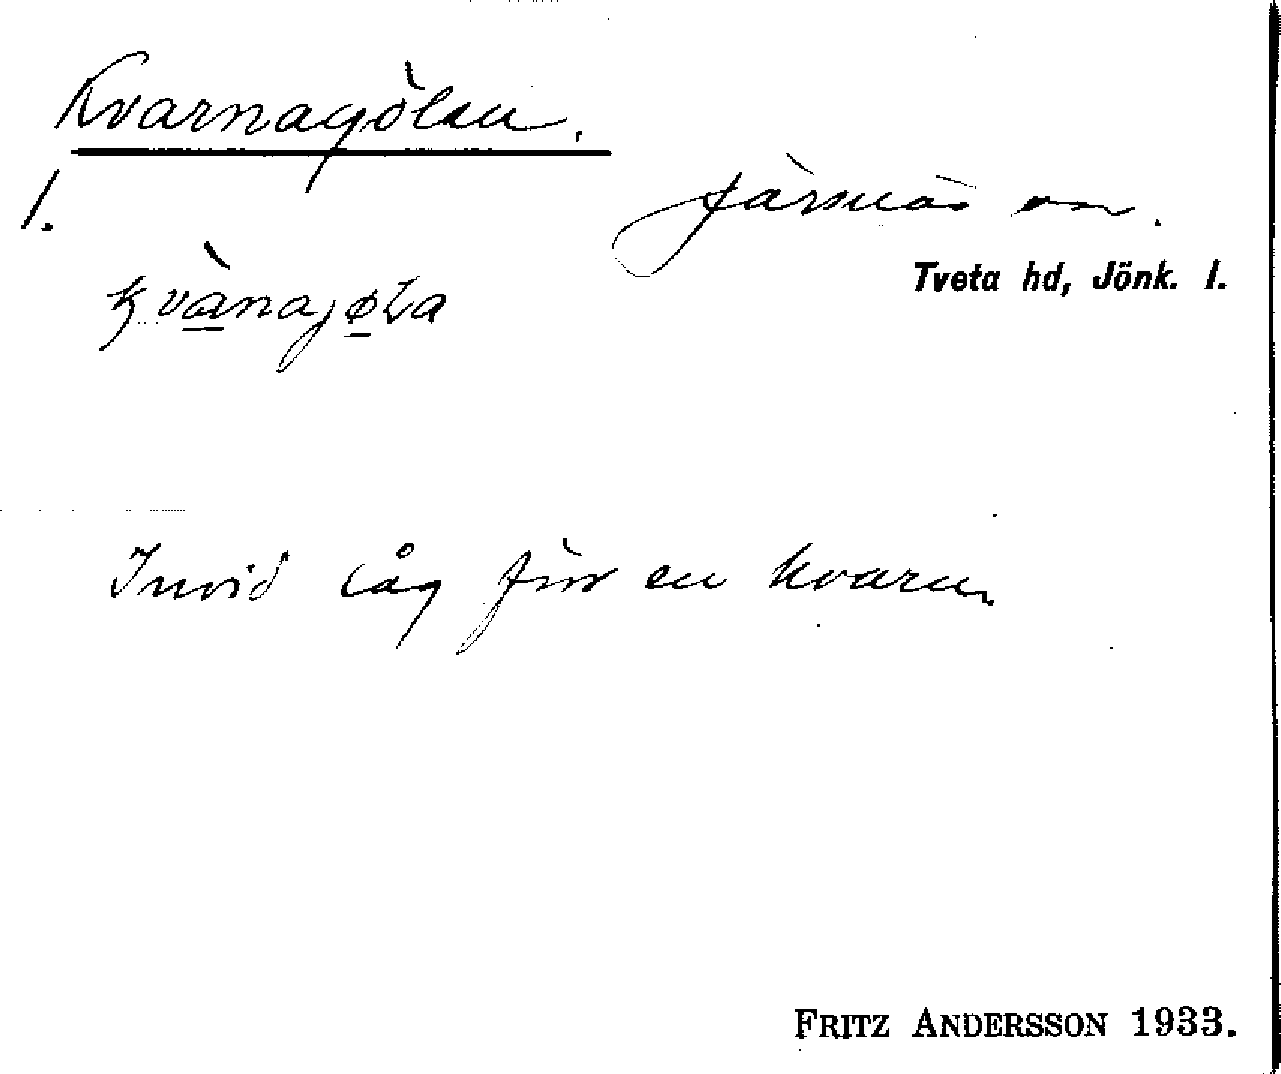 Kvarnagölen.
1.
Järsnäs sn.
kvànajøla
Tveta hd, Jönk. l.
Invid låg förr en kvarn.
FRITZ ANDERSSON 1933.